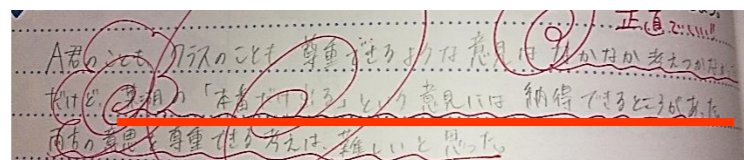 正直でいい!!
A君のことも クラスのことも 尊重できるような意見は なかなか考えつかない
だけど、の「本番だけ出る」という意見には 納得できるところがあった
両方の意思を尊重できる考えは、難しいと思った。